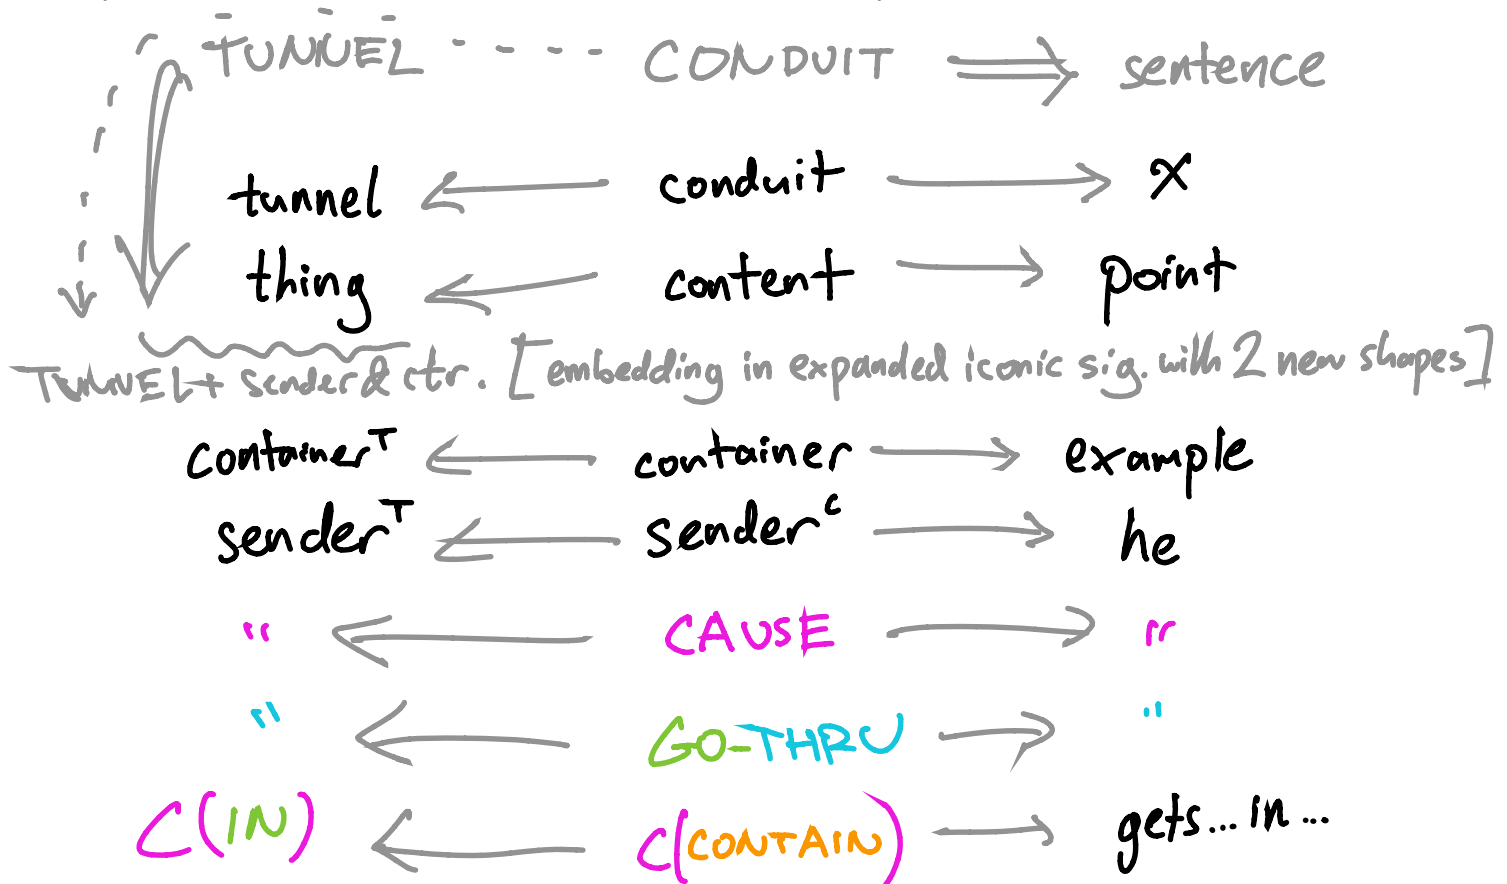 TUNNEL CONDUIT sentence
tunnel conduit x
thing content point
TUNNEL + sender & ctr. [embedding in expanded iconic sig. with 2 new shapes]
containerᵀ container example
senderᵀ senderᶜ he
" CAUSE "
" GO-THRU "
C(IN) C(CONTAIN) gets...in...